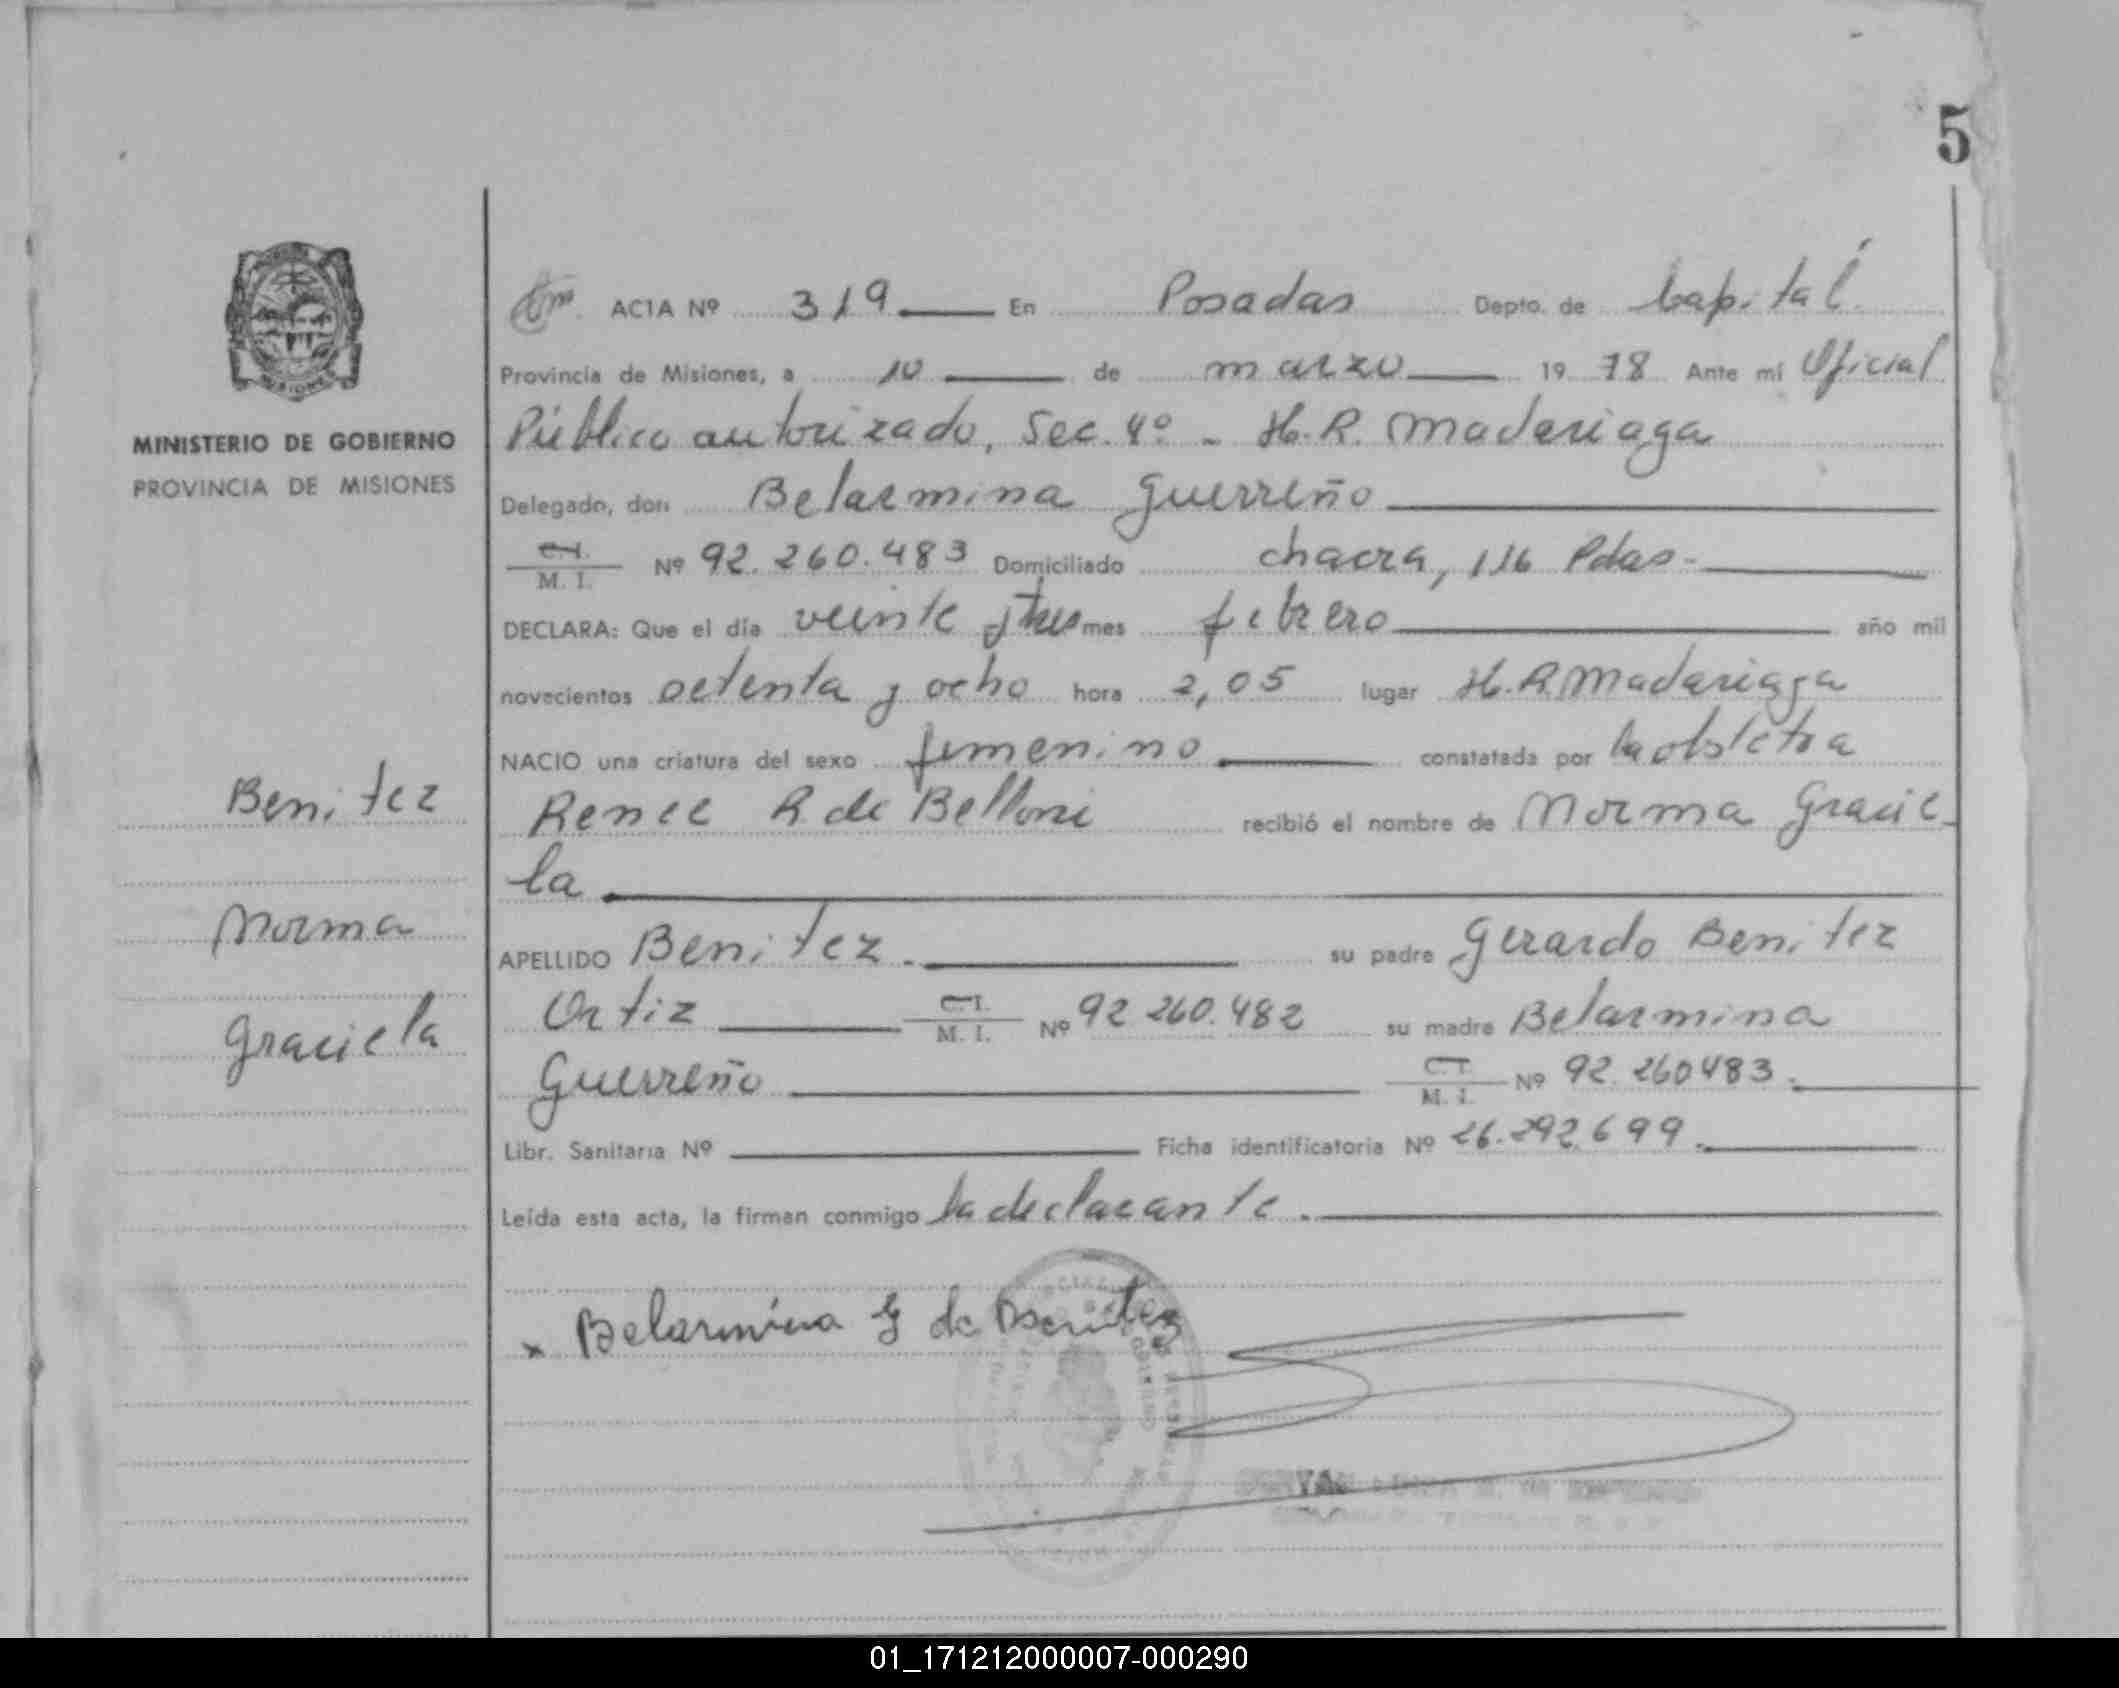 5
ACTA Nº 319 En Posadas Depto. de Capital
Provincia de Misiones, a 10 de marzo 1978 Ante mí Oficial
Público autorizado, Sec. 4º - H. R. Madariaga
Delegado, don Belarmina Guerreño
C.I. M. I. Nº 92.260.483 Domiciliado chacra, 116 Pdas-
DECLARA: Que el día veinte y tres mes febrero año mil
novecientos setenta y ocho hora 2,05 lugar H. R. Madariaga
NACIO una criatura del sexo femenino constatada por la obstetra
Renee R. de Belloni recibió el nombre de Norma Gracie-
la
APELLIDO Benitez. su padre Gerardo Benitez
Ortiz C.I. M. I. Nº 92 260.482 su madre Belarmina
Guerreño C.I. M. I. Nº 92.260483.
Libr. Sanitaria Nº Ficha identificatoria Nº 26.292.699.
Leída esta acta, la firman conmigo la declarante.
x Belarmina G de Benitez
MISIONES
MINISTERIO DE GOBIERNO
PROVINCIA DE MISIONES
Benitez
Norma
Graciela
01_171212000007-000290